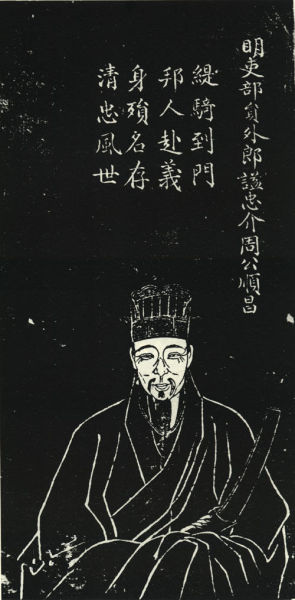 明吏部員外郎諡忠介周公順昌
緹騎到門
邦人赴義
身殞名存
清忠風世